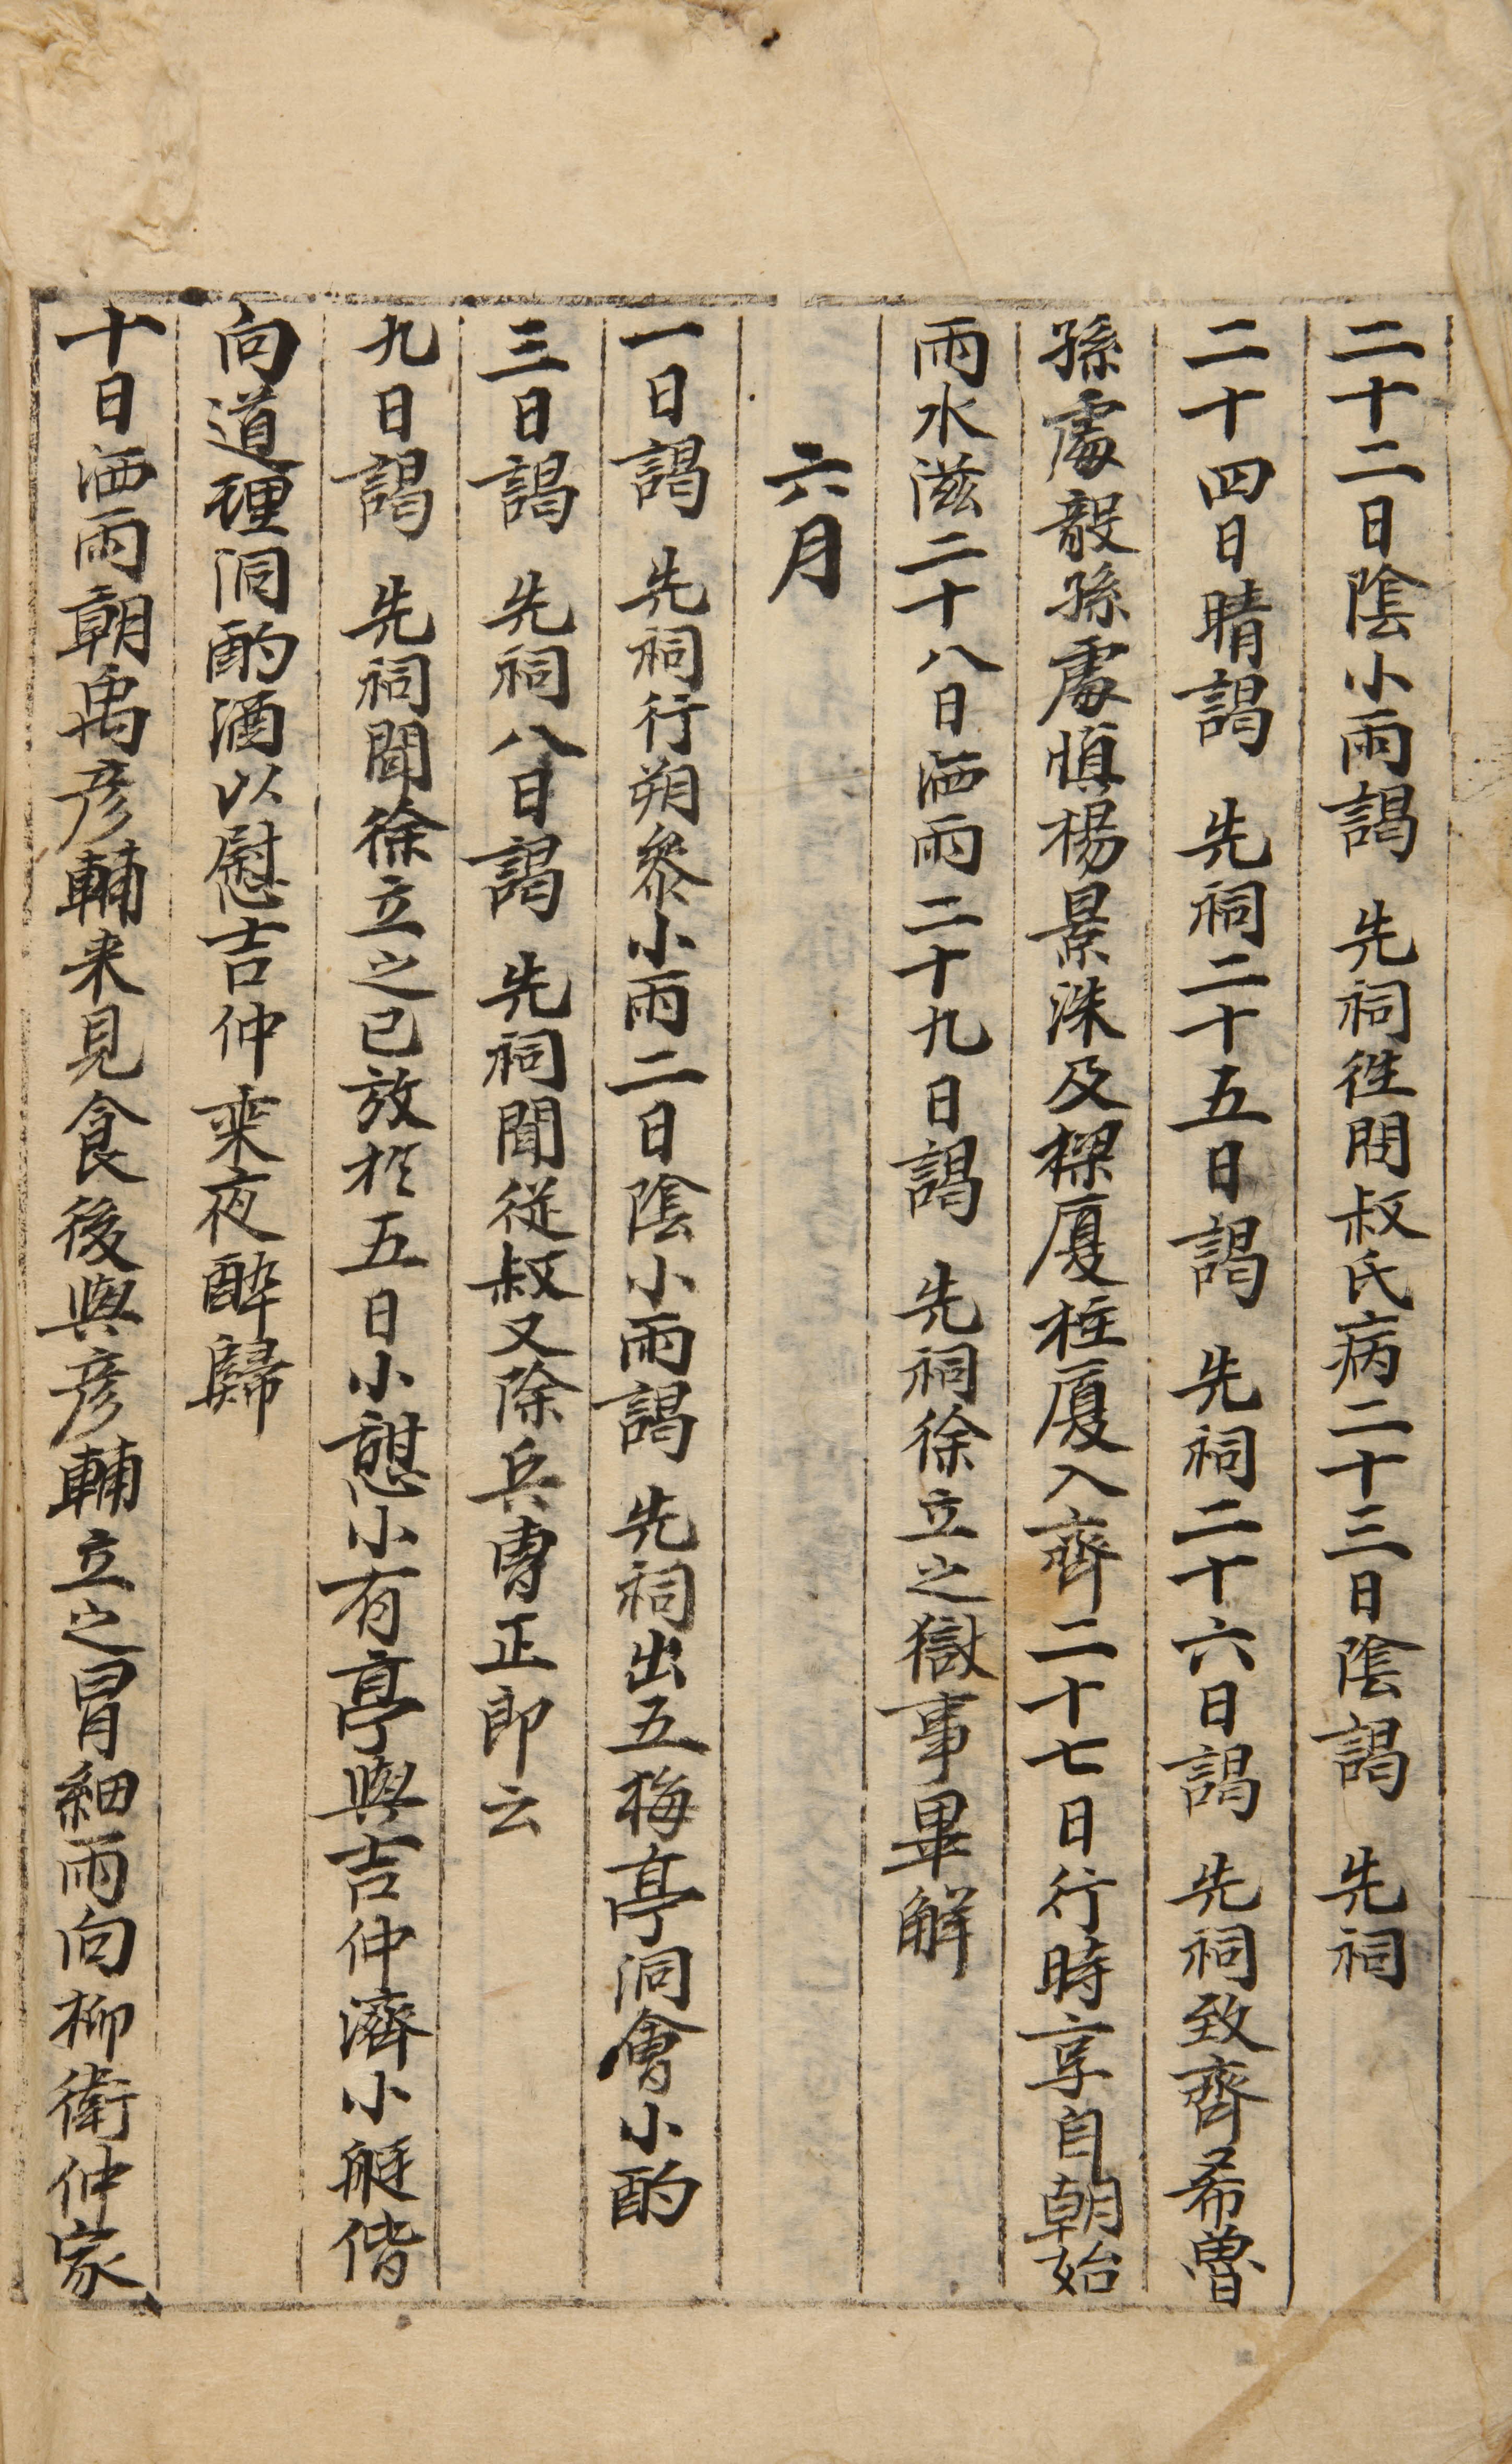 二十二日陰小雨謁　先祠徃問叔氏病二十三日陰謁　先祠
二十四日晴謁　先祠二十五日謁　先祠二十六日謁　先祠致齊希曽
孫處毅孫處愼楊景洙及樑廈柱廈入齊二十七日行時享自朝始
雨水滋二十八日洒雨二十九日謁　先祠徐立之獄事畢解
六月
一日謁　先祠行朔叅小雨二日陰小雨謁　先祠出五梅亭洞會小酌
三日謁　先祠八日謁　先祠聞従叔又除兵曹正郎云
九日謁　先祠聞徐立之已放於五日小憇小有亭與吉仲濟小艇偕
向道理洞酌酒以慰吉仲乘夜醉歸
十日洒雨朝禹彦輔来見食後與彦輔立之冒細雨向柳衛仲家